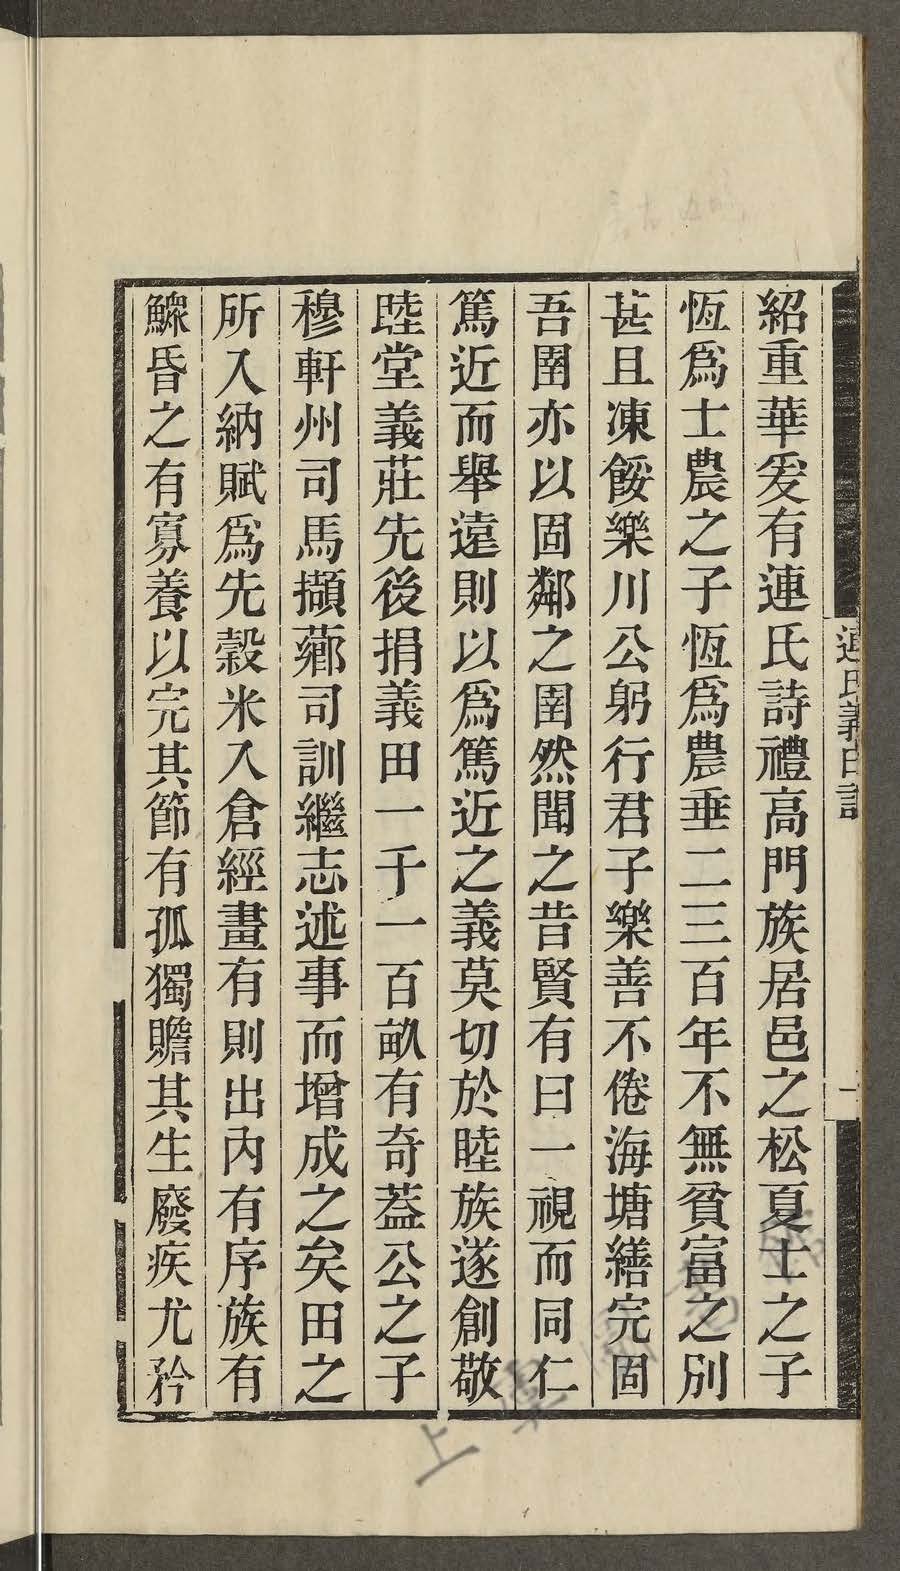 紹重華爰有連氏詩禮高門族居邑之松夏士之子
恆爲士農之子恆爲農垂二三百年不無貧富之別
甚且凍餒樂川公躬行君子樂善不倦海塘繕完固
吾圉亦以固鄰之圉然聞之昔賢有曰一視而同仁
篤近而舉遠則以爲篤近之義莫切於睦族遂創敬
睦堂義莊先後捐義田一千一百畝有奇葢公之子
穆軒州司馬擷薌司訓繼志述事而增成之矣田之
所入納賦爲先穀米入倉經畫有則出內有序族有
鰥昏之有寡養以完其節有孤獨贍其生廢疾尤矜